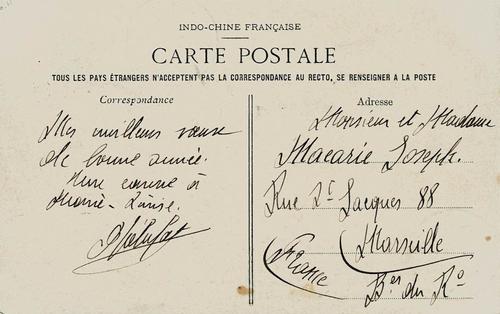 INDO-CHINE FRANÇAISE
CARTE POSTALE
TOUS LES PAYS ÉTRANGERS N'ACCEPTENT PAS LA CORRESPONDANCE AU RECTO, SE RENSEIGNER A LA POSTE
Correspondance
Mes meilleurs vœux
de bonne année.
à
Marie-Louise.
Adresse
Monsieur et Madame
Macarie Joseph.
Rue St Jacques 88
Marseille
(France)
Bes du Ro